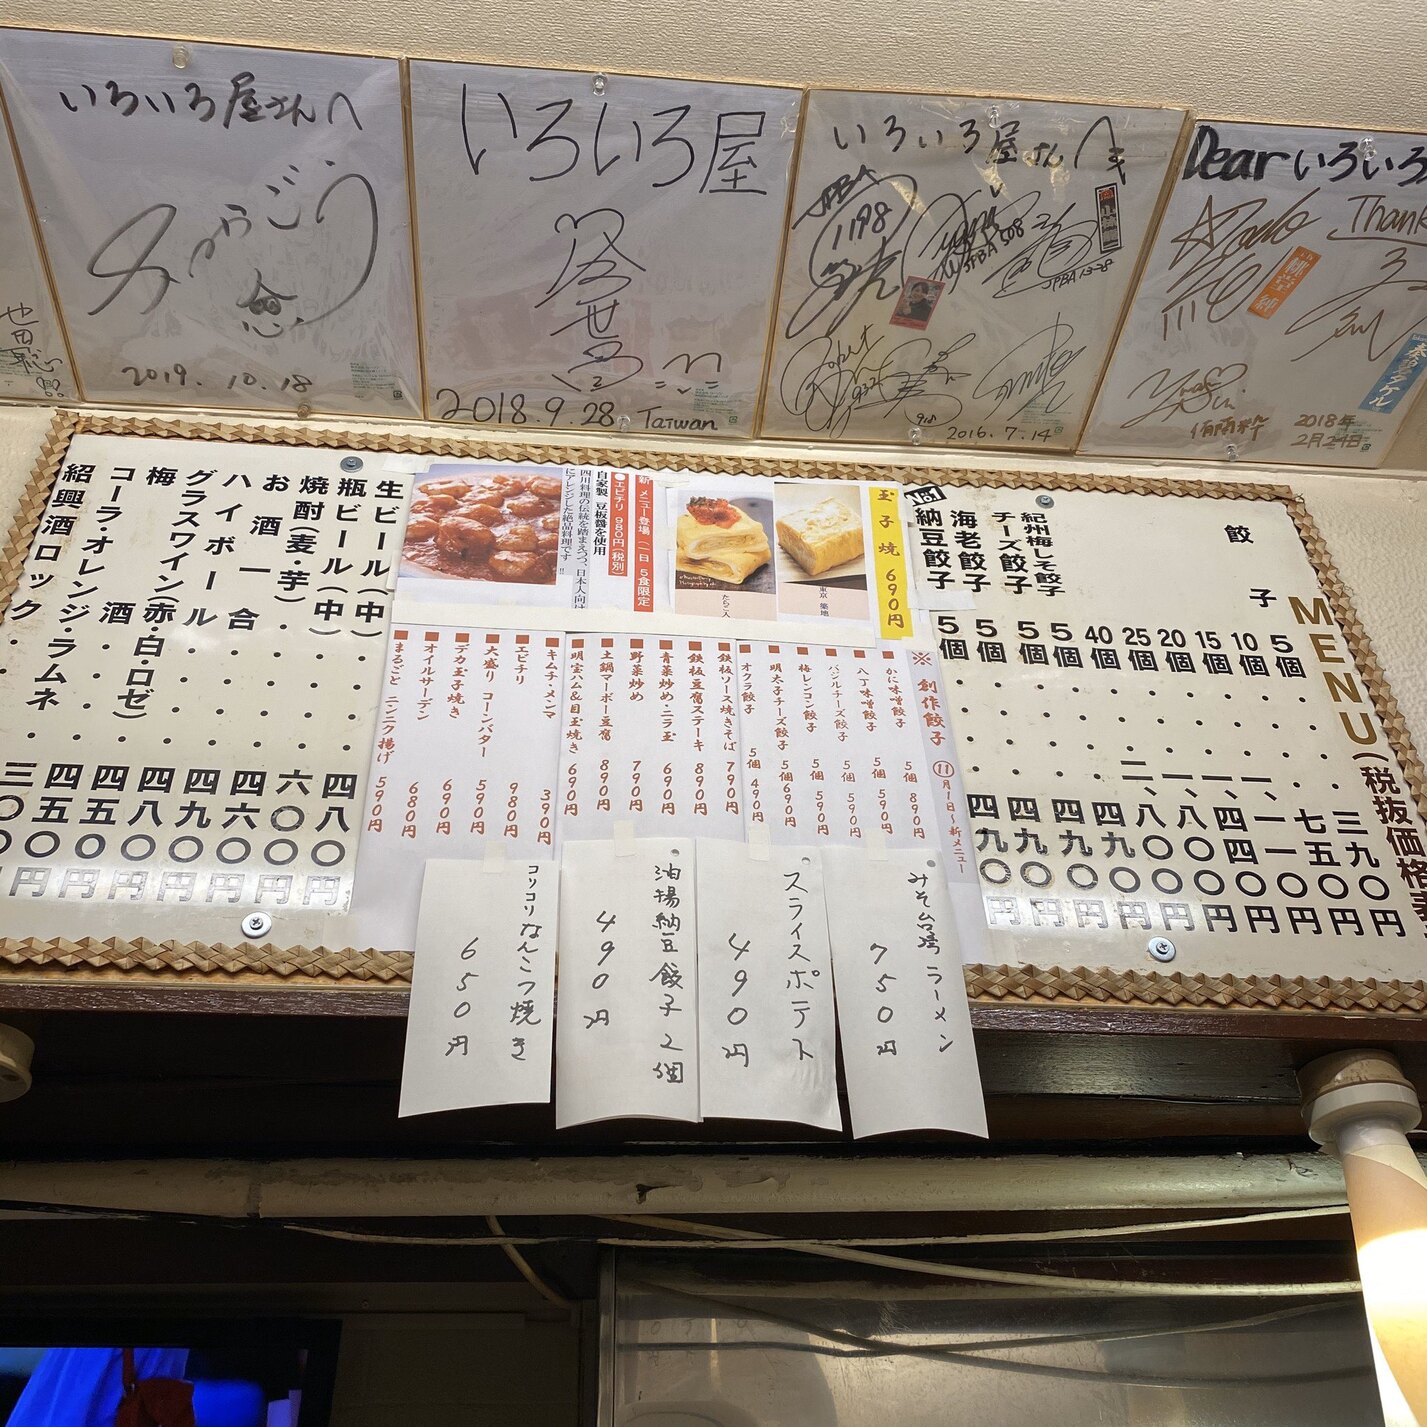 いろいろ屋さんへ
2019. 10. 18
いろいろ屋
2018.9.28 Taiwan
いろいろ屋さんへ
JPBA
1198
JPBA 508
JPBA 13-28
2016.7.14
Dear いろいろ
Thank
2018年
2月24日
MENU(税抜価格表
餃子 5個・・・三九〇円
10個・・・七五〇円
15個・・・一、一一〇円
20個・・・一、四四〇円
25個・・・一、八〇〇円
40個・・・二、八〇〇円
紀州梅しそ餃子 5個・・・四九〇円
チーズ餃子 5個・・・四九〇円
海老餃子 5個・・・四九〇円
納豆餃子 5個・・・四九〇円
玉子焼 690円
東京 築地
たらこ入
新メニュー登場 一日5食限定
●エビチリ 980円(税別)
自家製 豆板醤を使用
四川料理の伝統を踏まえつつ、日本人向け
にアレンジした絶品料理です!!
※創作餃子 ⑪月1日〜新メニュー
■かに味噌餃子 5個 890円
■八丁味噌餃子 5個 590円
■バジルチーズ餃子 5個 590円
■梅レンコン餃子 5個 590円
■明太子チーズ餃子 5個690円
■オクラ餃子 5個 490円
■鉄板ソース焼きそば 790円
■鉄板豆腐ステーキ 890円
■青菜炒め・ニラ玉 690円
■野菜炒め 790円
■土鍋マーボー豆腐 890円
■明宝ハム&目玉焼き 690円
■キムチ・メンマ 390円
■エビチリ 980円
■大盛り コーンバター 590円
■デカ玉子焼き 690円
■オイルサーデン 680円
■まるごと ニンニク揚げ 590円
生ビール(中)・・四八〇円
瓶ビール(中)・・六〇〇円
焼酎(麦・芋)・・・四六〇円
お酒一合・・・四九〇円
ハイボール・・・四八〇円
グラスワイン(赤・白・ロゼ)・四五〇円
梅酒・・・四五〇円
コーラ・オレンジ・ラムネ
紹興酒ロック・・
みそ台湾ラーメン
750円
スライスポテト
490円
油揚納豆餃子2個
490円
コリコリなんこつ焼き
650円